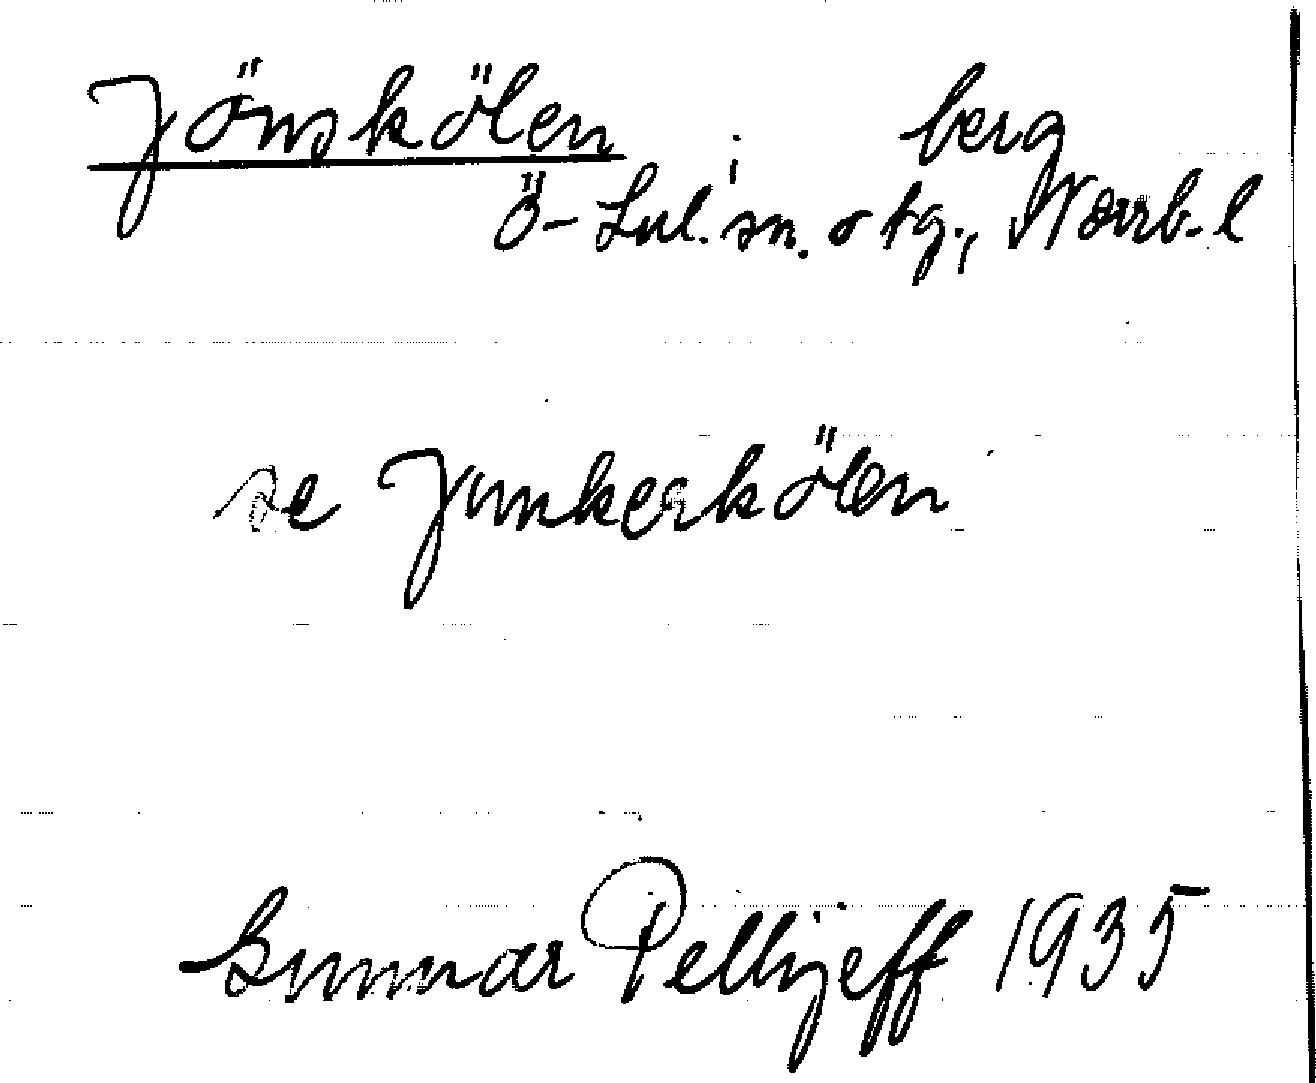 Jönskölen berg
Ö-Lul. sn. o tg., Norrb. l
se Junkerkölen
Gunnar Pellijeff 1935